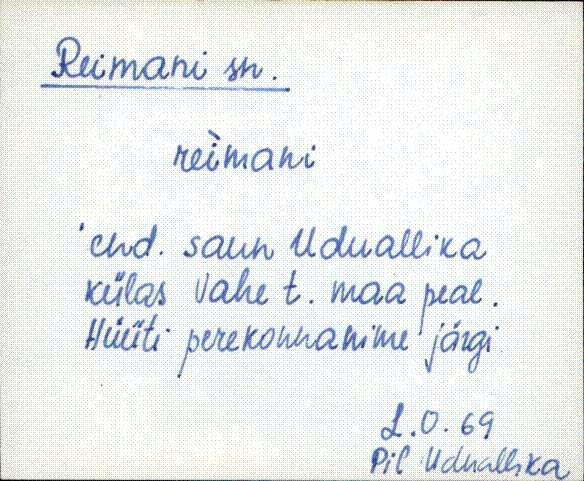 Reimani sn.
reìmani
'end. saun Uduallika
külas Vahe t. maa peal.
Hüüti perekonnanime järgi
L.O. 69
Pil Uduallika